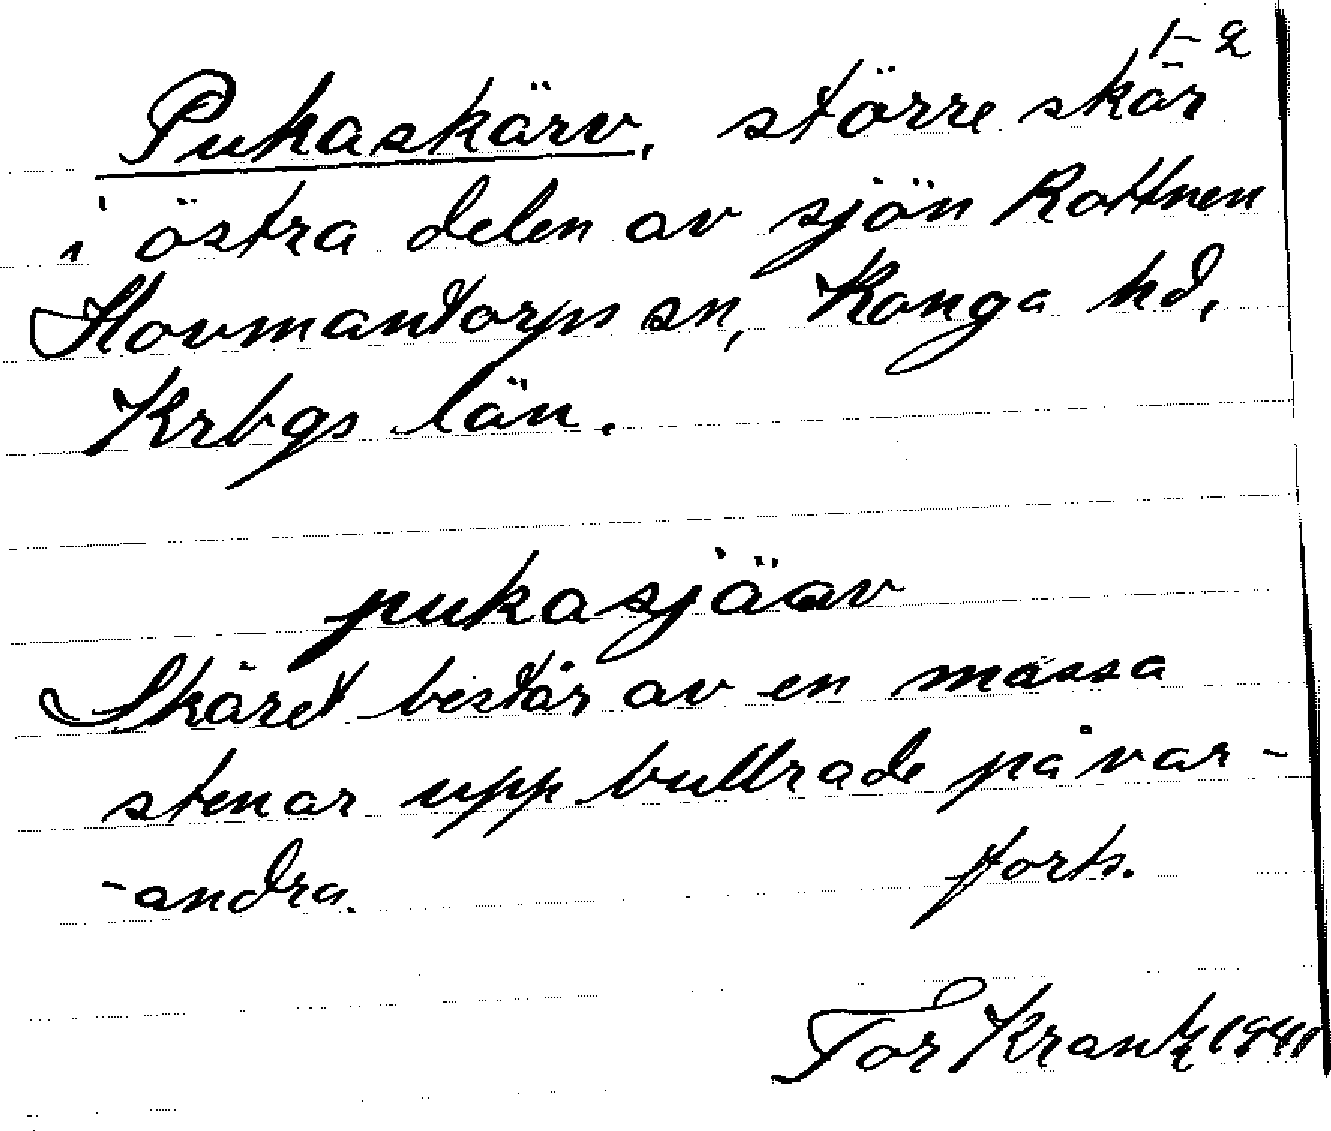 1-2
Pukaskärv, större skär
i östra delen av sjön Rottnen
Hovmantorps sn, Konga hd,
Krbgs län.
pukasjäav
Skäret består av en massa
stenar upp bullrade på var-
-andra. forts.
Tor Krantz 1941